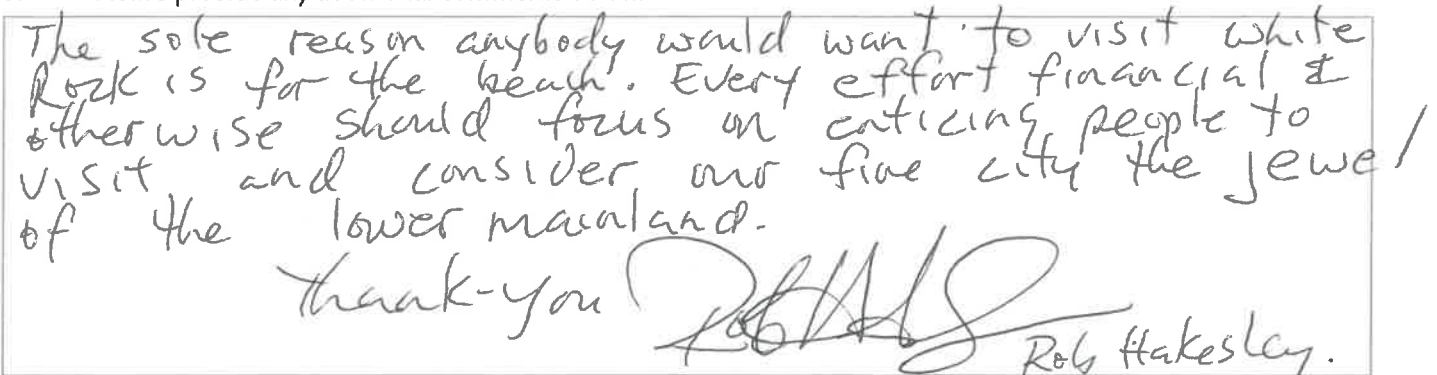 The sole reason anybody would want to visit white
Rock is for the beach. Every effort financial &
otherwise should focus on enticing people to
visit and consider our fine city the jewel
of the lower mainland.
Thank-you
Rob Hakesley.